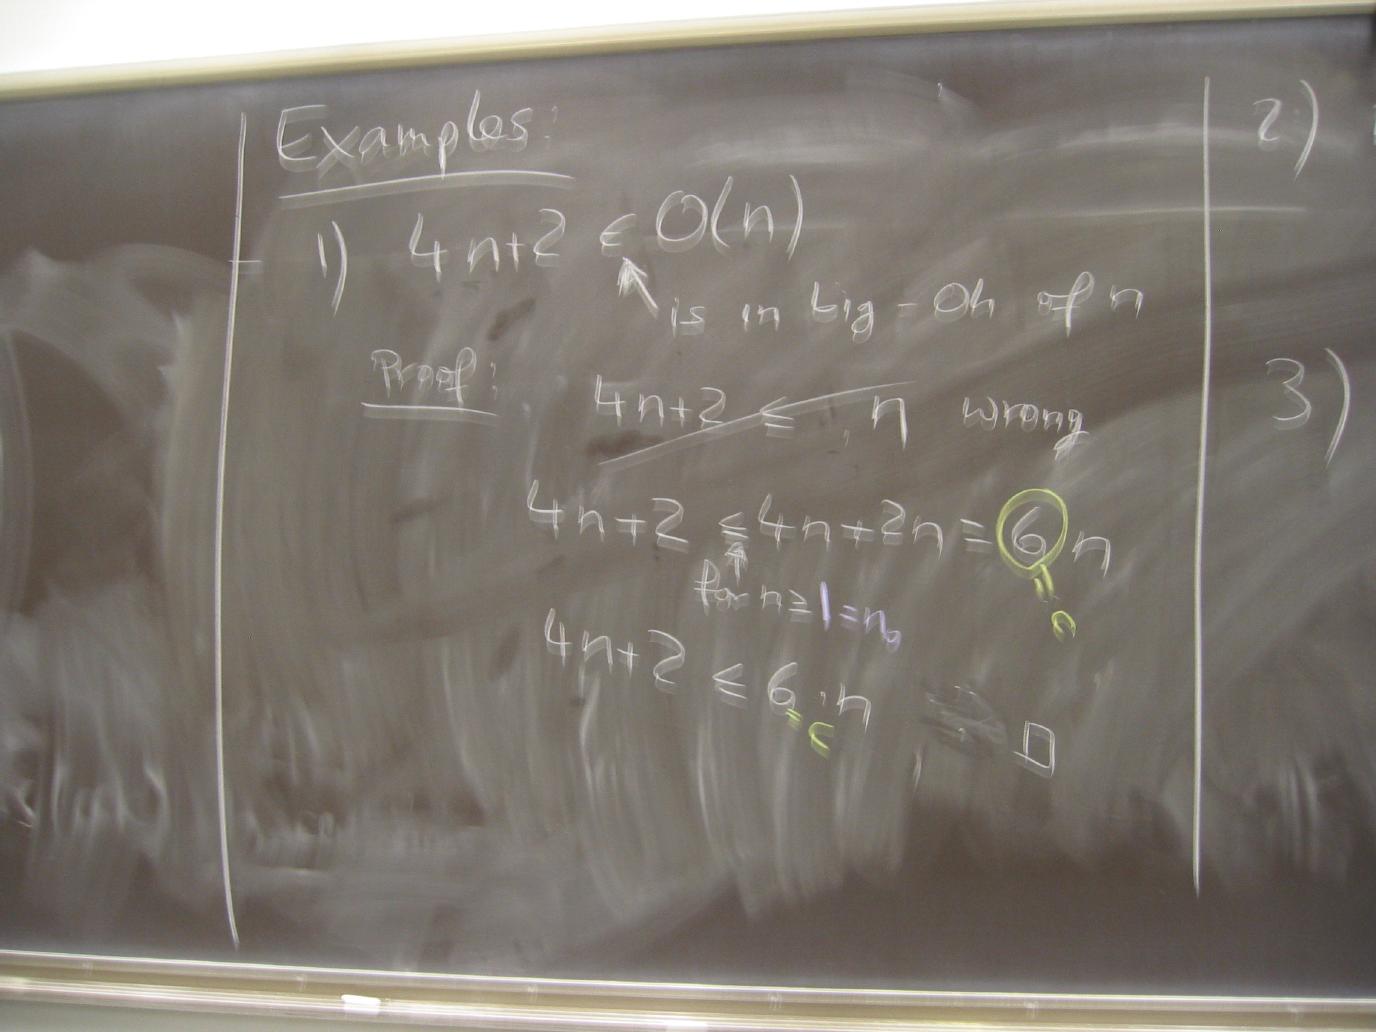 Examples:
1) 4n+2 ∈ O(n)
is in big-Oh of n
Proof:
4n+2 ≤ n wrong
4n+2 ≤ 4n+2n = 6n
for n ≥ 1 = n₀
c
4n+2 ≤ 6·n
= c
□
2)
3)